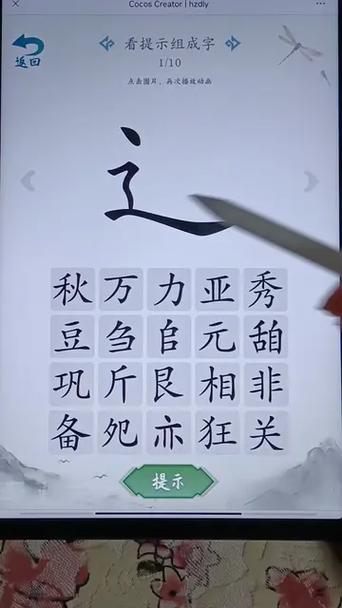 Cocos Creator | hzdly
返回
看提示组成字
1/10
点击图片，再次播放动画
辶
秋 万 力 亚 秀
豆 刍 𠂤 元 甜
巩 斤 艮 相 非
备 夗 亦 狂 关
提示